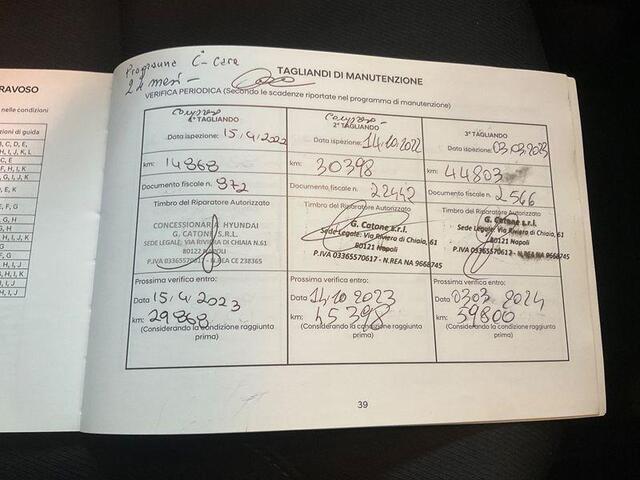 RAVOSO
nelle condizioni
zioni di guida
B, C, D, E,
H, I, J, K, L
C, E
F, H, I, K
G, I, J, K
D, E, K
E, F, G
G, H
H, I, J
G
G, H, I, J
G, H, I, K
H, I, J
Programme C-Care
24 mesi -
TAGLIANDI DI MANUTENZIONE
VERIFICA PERIODICA (Secondo le scadenze riportate nel programma di manutenzione)
compreso
1° TAGLIANDO
Data ispezione: 15/4/2022
km: 14868
Documento fiscale n. 972
Timbro del Riparatore Autorizzato
CONCESSIONARIA HYUNDAI
G. CATONE S.R.L.
SEDE LEGALE: VIA RIVIERA DI CHIAIA N.61
80121 NAPOLI
P.IVA 03365570617 - N.REA CE 238365
Prossima verifica entro:
Data 15/4/2023
km: 29868
(Considerando la condizione raggiunta
prima)
compreso
2° TAGLIANDO
Data ispezione: 14.10.2022
km: 30398
Documento fiscale n. 22442
Timbro del Riparatore Autorizzato
G. Catone s.r.l.
Sede Legale: Via Riviera di Chiaia, 61
80121 Napoli
P.IVA 03365570617 - N.REA NA 9668745
Prossima verifica entro:
Data 14.10 2023
km: 45398
(Considerando la condizione raggiunta
prima)
3° TAGLIANDO
Data ispezione: 03.03.2023
km: 44803
Documento fiscale n. 2566
Timbro del Riparatore Autorizzato
G. Catone s.r.l.
Sede Legale: Via Riviera di Chiaia, 61
80121 Napoli
P.IVA 03365570617 - N.REA NA 9668745
Prossima verifica entro:
Data 0303 2024
km: 59800
(Considerando la condizione raggiunta
prima)
39